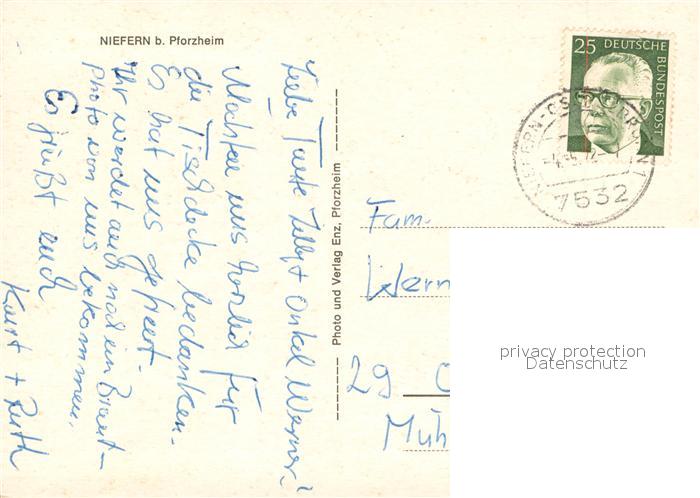 NIEFERN b. Pforzheim
Liebe Tante Lilly + Onkel Werner!
Möchten uns herzlich für
die Tischdecke bedanken.
Es hat uns gefreut.
Ihr werdet auch noch ein Braut-
photo von uns bekommen.
Es grüßt euch
Kurt + Ruth
Photo und Verlag Enz, Pforzheim
25 DEUTSCHE
BUNDESPOST
7532
Fam.
Wern
29 O
Müh
privacy protection
Datenschutz